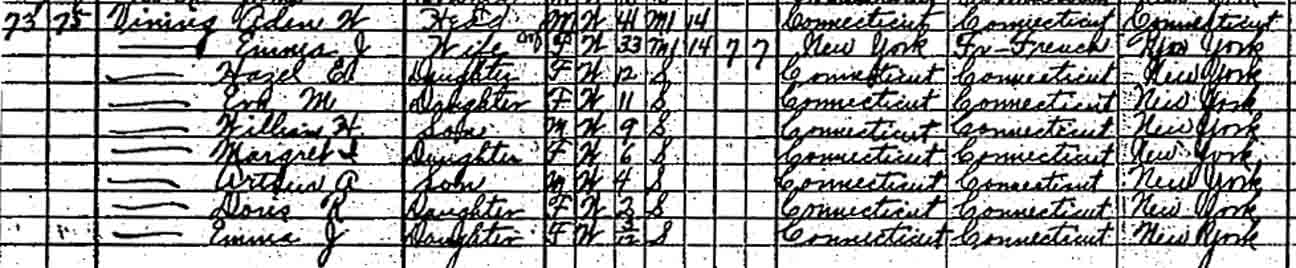 73 75 Vining Aden W Head M W 41 M1 14 Connecticut Connecticut Connecticut
— Emma J Wife F W 33 M1 14 7 7 New York Fr-French New York
— Hazel Daughter F W 12 S Connecticut Connecticut New York
— Eva M Daughter F W 11 S Connecticut Connecticut New York
— William H Son M W 9 S Connecticut Connecticut New York
— Margret Daughter F W 6 S Connecticut Connecticut New York
— Arthur A Son M W 4 S Connecticut Connecticut New York
— Doris R Daughter F W 2 S Connecticut Connecticut New York
— Emma J Daughter F W S Connecticut Connecticut New York